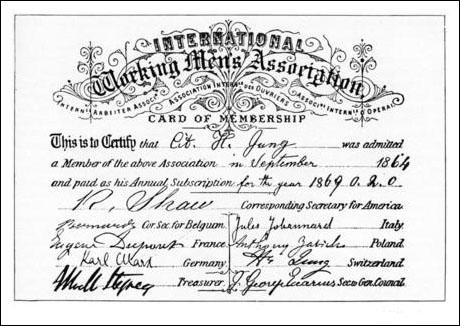 INTERNATIONAL
Working Men's Association
INTERNT ARBEITER ASSOCT ASSOCIATION INTERLE DES OUVRIERS ASSOCNE INTERNLE D'OPERAI
CARD OF MEMBERSHIP
This is to Certify that Cit. H. Jung was admitted
a Member of the above Association in September 1864
and paid as his Annual Subscription for the year 1869 0.2.0.
R. Shaw Corresponding Secretary for America.
Bernard Cor. Sec. for Belgium. Jules Johannard Italy.
Eugène Dupont France. Anthony Zabicki Poland.
Karl Marx Germany. H. Jung Switzerland.
Treasurer. J. George Eccarius Sec. to Genl. Council.